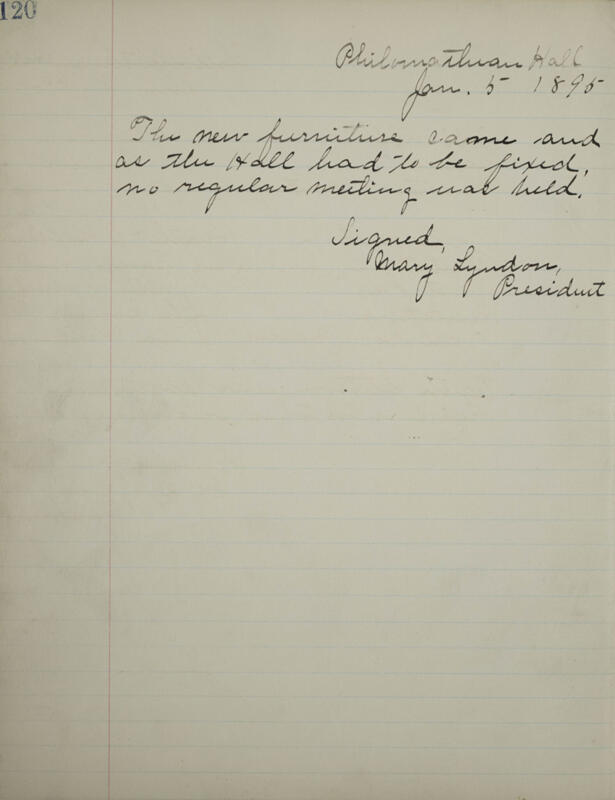 120
Philomathean Hall
Jan. 5 1895
The new furniture came and
as the Hall had to be fixed,
no regular meeting was held.
Signed,
Mary Lyndon,
President